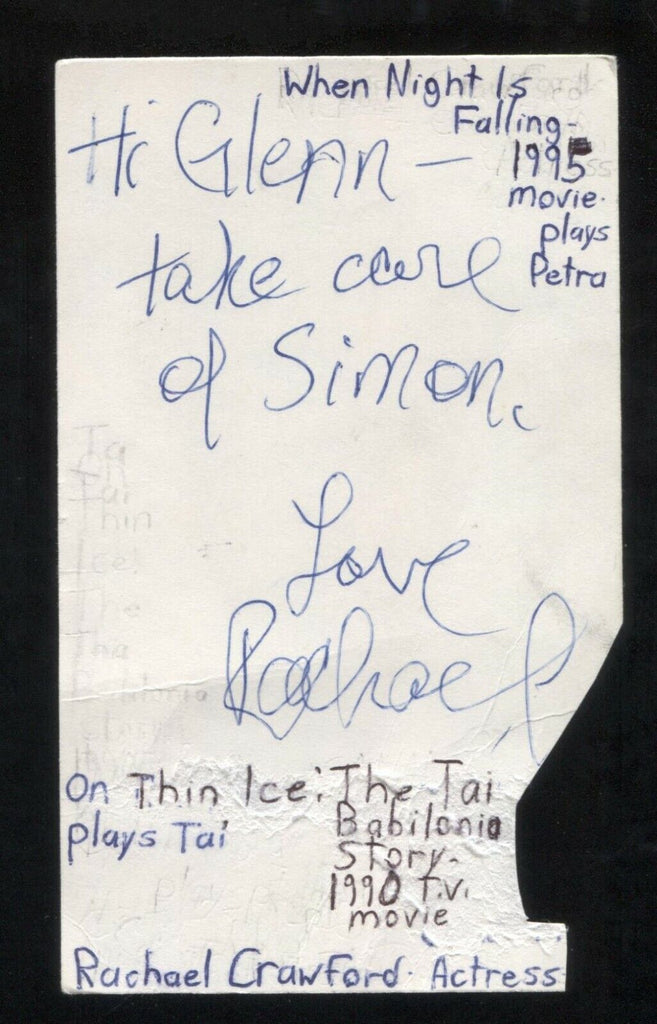 When Night Is
Falling-
1995
movie.
plays
Petra
Hi Glenn —
take care
of Simon.
Love
Rachael
On Thin Ice: The Tai
Babilonia
Story.
1990 T.V.
movie
plays Tai
Rachael Crawford. Actress